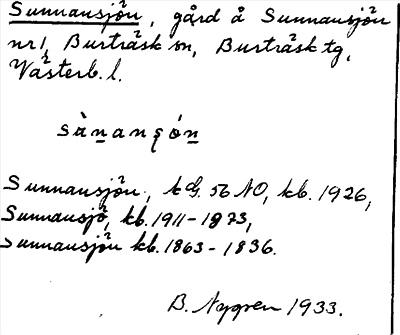 Sunnansjön, gård å Sunnansjön
nr 1, Burträsk sn, Burträsk tg,
Västerb. l.
Sunnansjön, kG. 56 NO, kb. 1926,
Sunnansjö, kb. 1911-1873,
Sunnansjön kb. 1863-1836.
B. Nygren 1933.